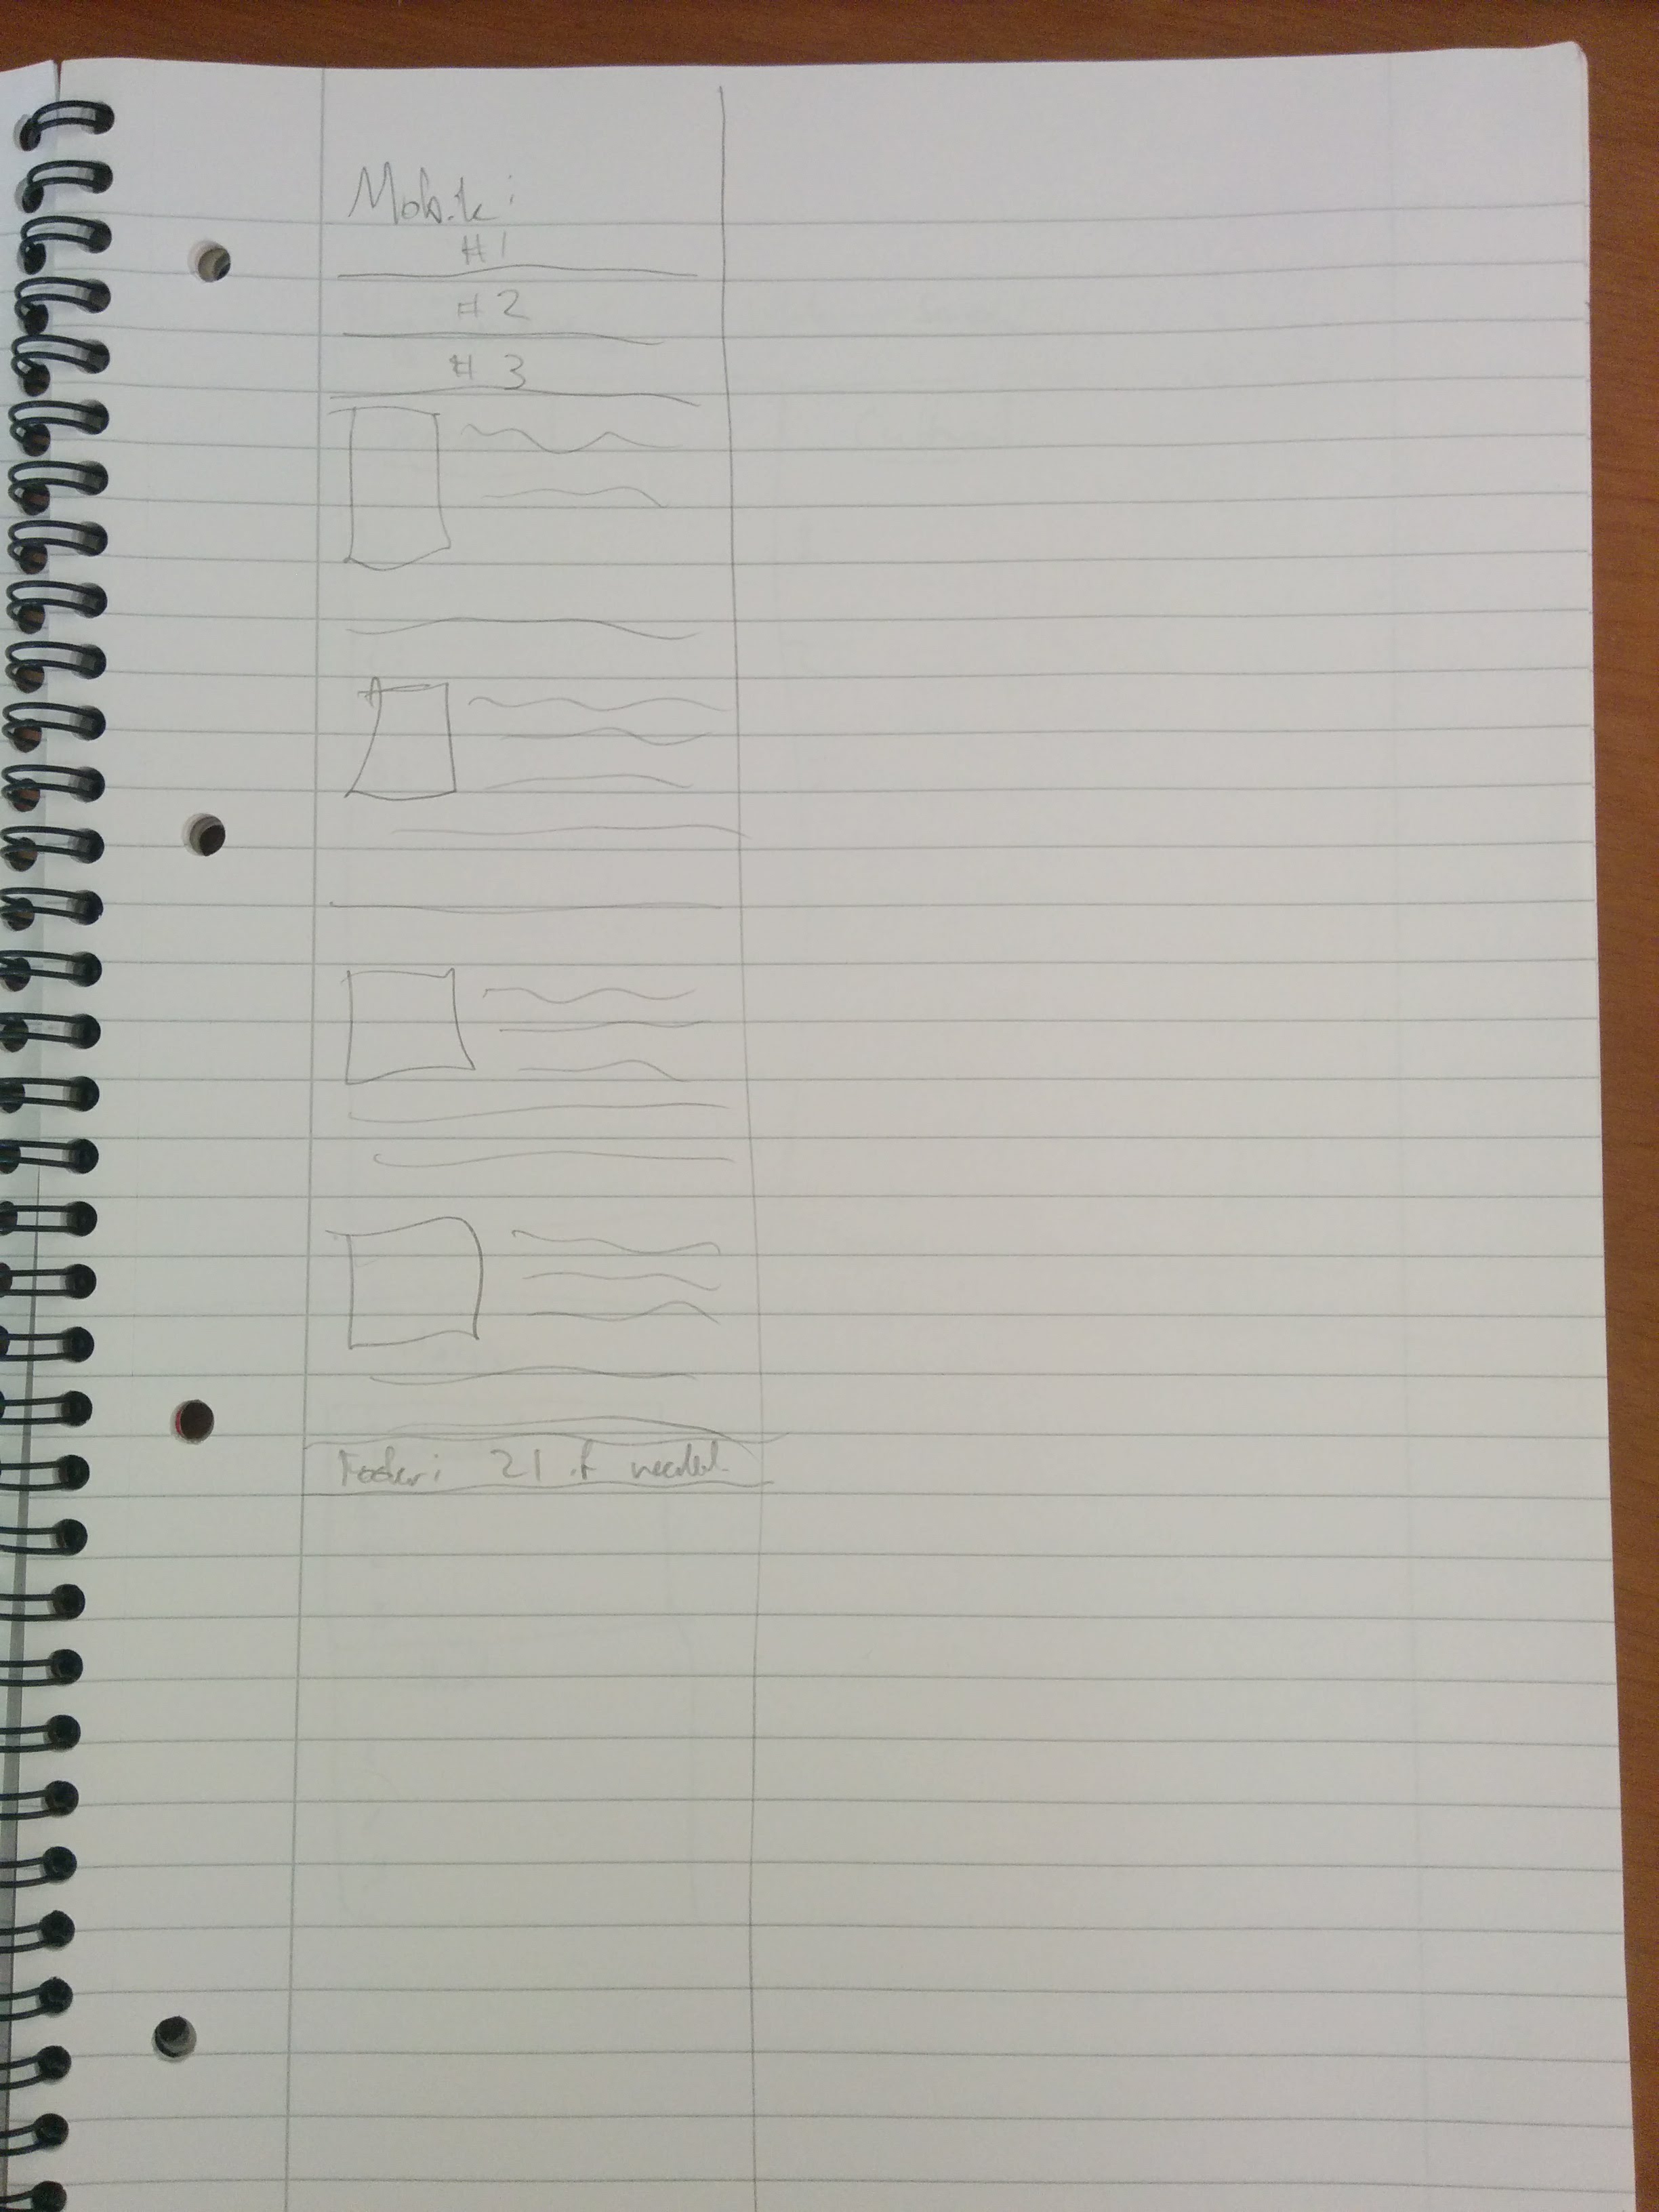 Mobile:
#1
#2
#3
Footer: 21 if needed